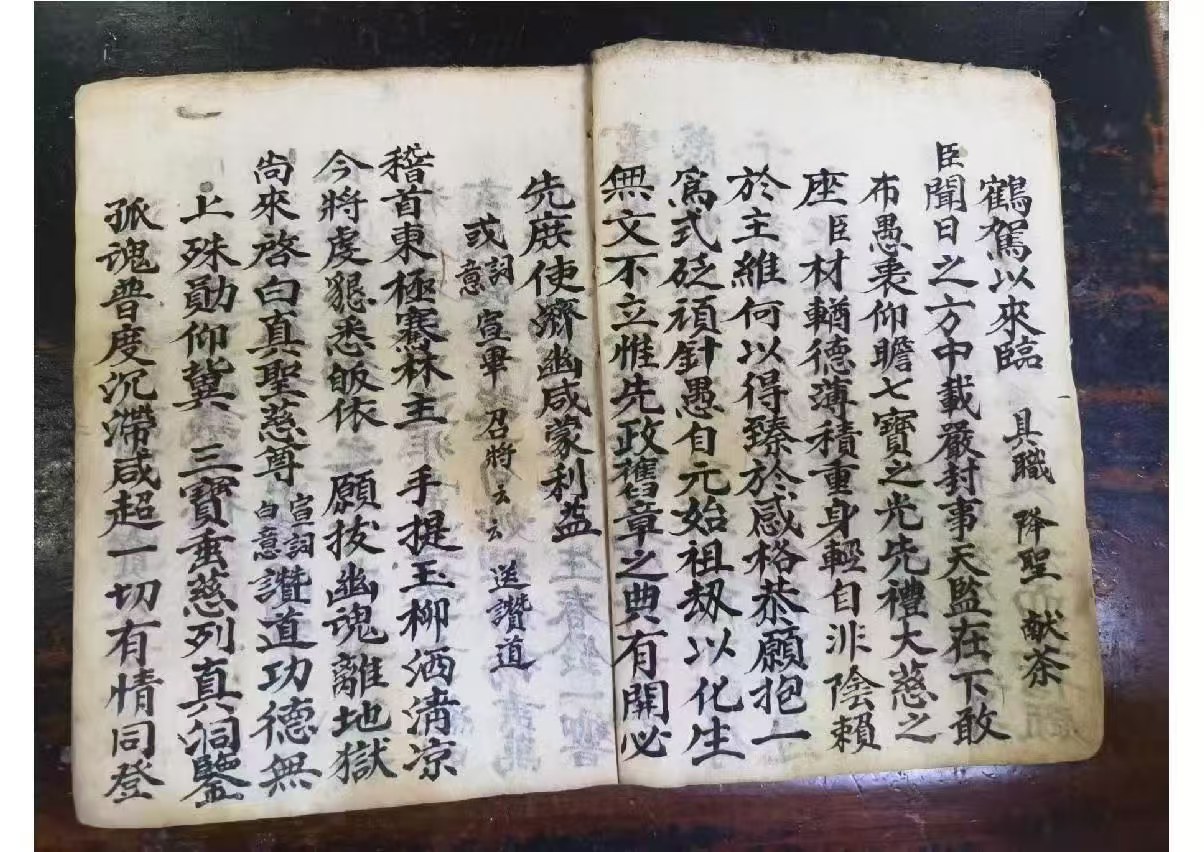 鶴駕以來臨 具職 降聖 献茶
臣聞日之方中載嚴封事天監在下敢
布愚衷仰瞻七寶之光先禮大慈之
座臣材輶德薄積重身輕自非陰賴
於主維何以得臻於感格恭願抱一
爲式砭頑針愚自元始祖刼以化生
無文不立惟先政舊章之典有開必
先庶使濟幽咸蒙利益
或詞意宣畢 召將云云 送讚道
稽首東極騫林主 手提玉柳洒清凉
今將虔懇悉皈依 願拔幽魂離地獄
尚來啓白真聖慈尊宣詞白意讚道功德無
上殊勛仰冀 三寶垂慈列真洞鑒
孤魂普度沉滯咸超一切有情同登